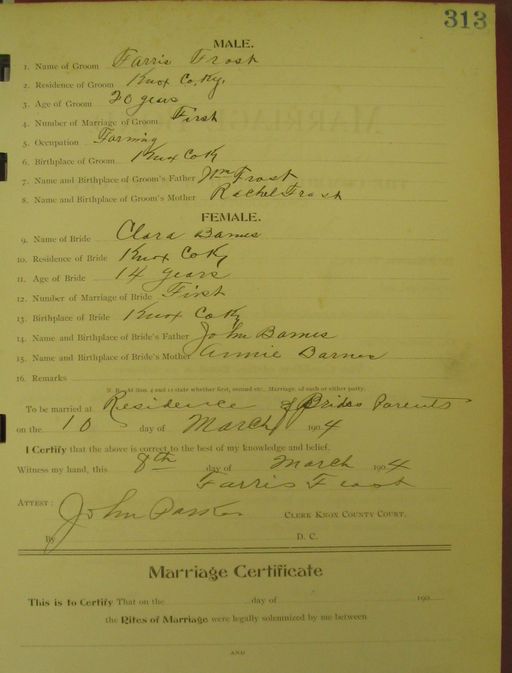 313
MALE.
1. Name of Groom Farris Frost
2. Residence of Groom Knox Co, Ky,
3. Age of Groom 20 years
4. Number of Marriage of Groom First
5. Occupation Farming
6. Birthplace of Groom Knox Co Ky
7. Name and Birthplace of Groom's Father Wm Frost
8. Name and Birthplace of Groom's Mother Rachel Frost
FEMALE.
9. Name of Bride Clara Barnes
10. Residence of Bride Knox Co Ky
11. Age of Bride 14 years
12. Number of Marriage of Bride First
13. Birthplace of Bride Knox Co Ky
14. Name and Birthplace of Bride's Father John Barnes
15. Name and Birthplace of Bride's Mother Annie Barnes
16. Remarks
N. B.—At Nos. 4 and 12 state whether first, second etc., Marriage, of each or either party.
To be married at Residence of Brides Parents
on the 10 day of March 1904
I Certify that the above is correct to the best of my knowledge and belief.
Witness my hand, this 8th day of March 1904
Farris Frost
ATTEST:
John Parker CLERK KNOX COUNTY COURT.
By D. C.
Marriage Certificate
This is to Certify That on the day of 190
the Rites of Marriage were legally solemnized by me between
AND